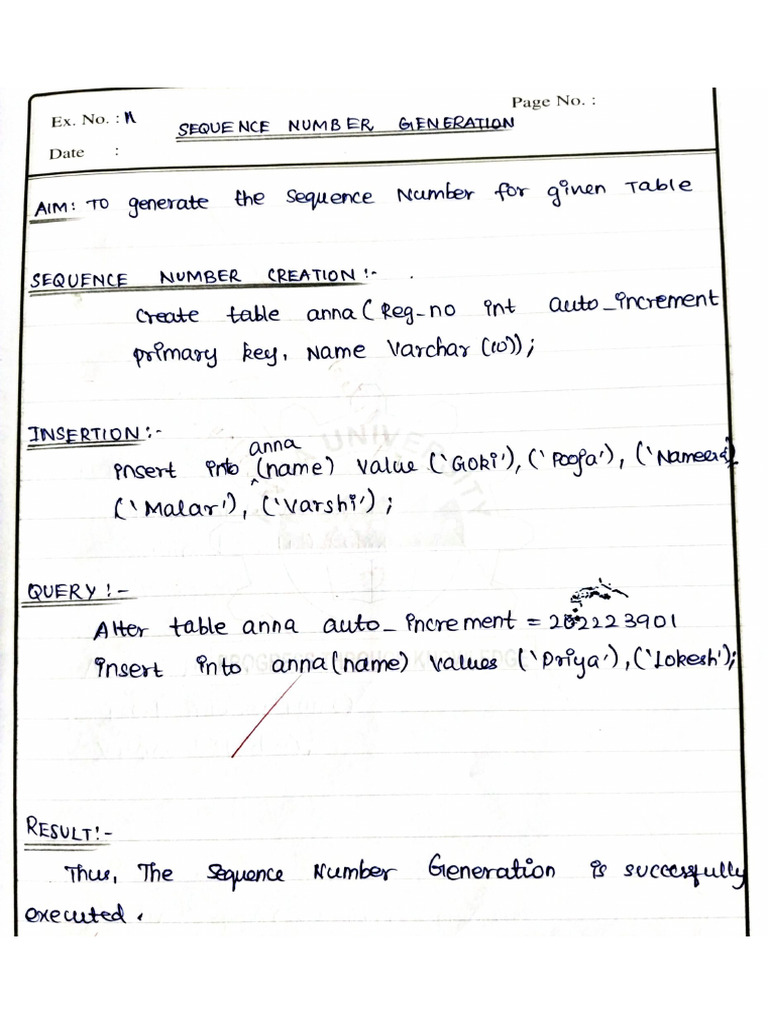 Page No. :
Ex. No. : 11
SEQUENCE NUMBER GENERATION
Date :
AIM: TO generate the Sequence Number for given Table
SEQUENCE NUMBER CREATION :-
Create table anna ( Reg_no int auto_increment
primary key, Name Varchar (10));
INSERTION :-
anna
insert into (name) value ('Goki'), ('Pooja'), (
('Malar'), ('Varshi');
QUERY :-
Alter table anna auto_increment = 202223901
insert into anna (name) values ('Priya'), ('Lokesh');
RESULT :-
Thus, The Sequence Number Generation is successfully
executed.